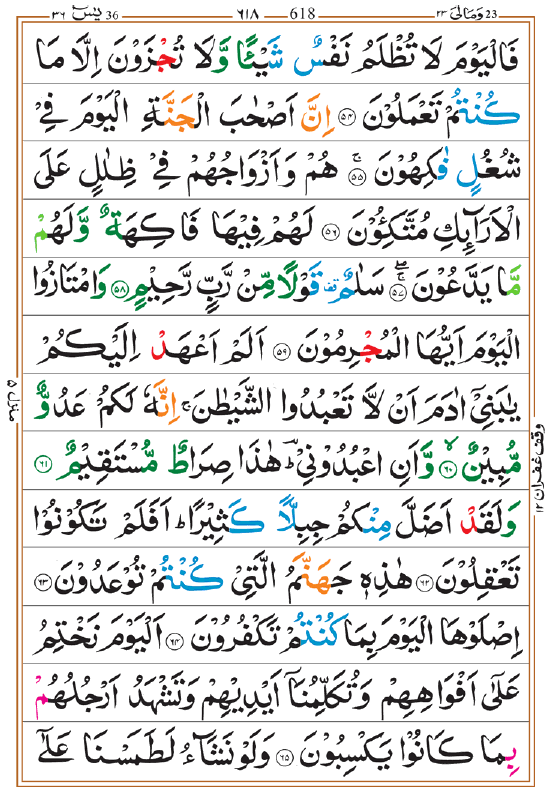 يٰسٓ ٣٦ 36 ٦١٨ 618 وَمَالِیَ ٢٣ 23
فَالْيَوْمَ لَا تُظْلَمُ نَفْسٌ شَيْـًٔا وَّلَا تُجْزَوْنَ اِلَّا مَا
كُنْتُمْ تَعْمَلُوْنَ ﴿٥٤﴾ اِنَّ اَصْحٰبَ الْجَنَّةِ الْيَوْمَ فِيْ
شُغُلٍ فٰكِهُوْنَ ۚ﴿٥٥﴾ هُمْ وَاَزْوَاجُهُمْ فِيْ ظِلٰلٍ عَلَى
الْاَرَآئِكِ مُتَّكِـُٔوْنَ ﴿٥٦﴾ لَهُمْ فِيْهَا فَاكِهَةٌ وَّلَهُمْ
مَّا يَدَّعُوْنَ ۚۖ﴿٥٧﴾ سَلٰمٌ ۣ قَوْلًا مِّنْ رَّبٍّ رَّحِيْمٍ ﴿٥٨﴾ وَامْتَازُوا
الْيَوْمَ اَيُّهَا الْمُجْرِمُوْنَ ﴿٥٩﴾ اَلَمْ اَعْهَدْ اِلَيْكُمْ
يٰبَنِيْٓ اٰدَمَ اَنْ لَّا تَعْبُدُوا الشَّيْطٰنَ ۚ اِنَّهٗ لَكُمْ عَدُوٌّ
مُّبِيْنٌ ۙ﴿٦٠﴾ وَّاَنِ اعْبُدُوْنِيْ ؕ هٰذَا صِرَاطٌ مُّسْتَقِيْمٌ ﴿٦١﴾
وَلَقَدْ اَضَلَّ مِنْكُمْ جِبِلًّا كَثِيْرًا ؕ اَفَلَمْ تَكُوْنُوْا
تَعْقِلُوْنَ ﴿٦٢﴾ هٰذِهٖ جَهَنَّمُ الَّتِيْ كُنْتُمْ تُوْعَدُوْنَ ﴿٦٣﴾
اِصْلَوْهَا الْيَوْمَ بِمَا كُنْتُمْ تَكْفُرُوْنَ ﴿٦٤﴾ اَلْيَوْمَ نَخْتِمُ
عَلٰٓى اَفْوَاهِهِمْ وَتُكَلِّمُنَآ اَيْدِيْهِمْ وَتَشْهَدُ اَرْجُلُهُمْ
بِمَا كَانُوْا يَكْسِبُوْنَ ﴿٦٥﴾ وَلَوْ نَشَآءُ لَطَمَسْنَا عَلٰٓى
منزل ٥
وقف غفران ١٢